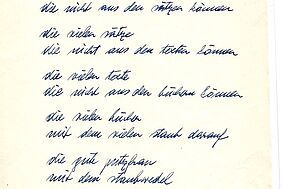 die nicht aus den sätzen können
die vielen sätze
die nicht aus den texten können
die vielen texte
die nicht aus den büchern können
die vielen bücher
mit dem vielen staub darauf
die gute putzfrau
mit dem staubwedel